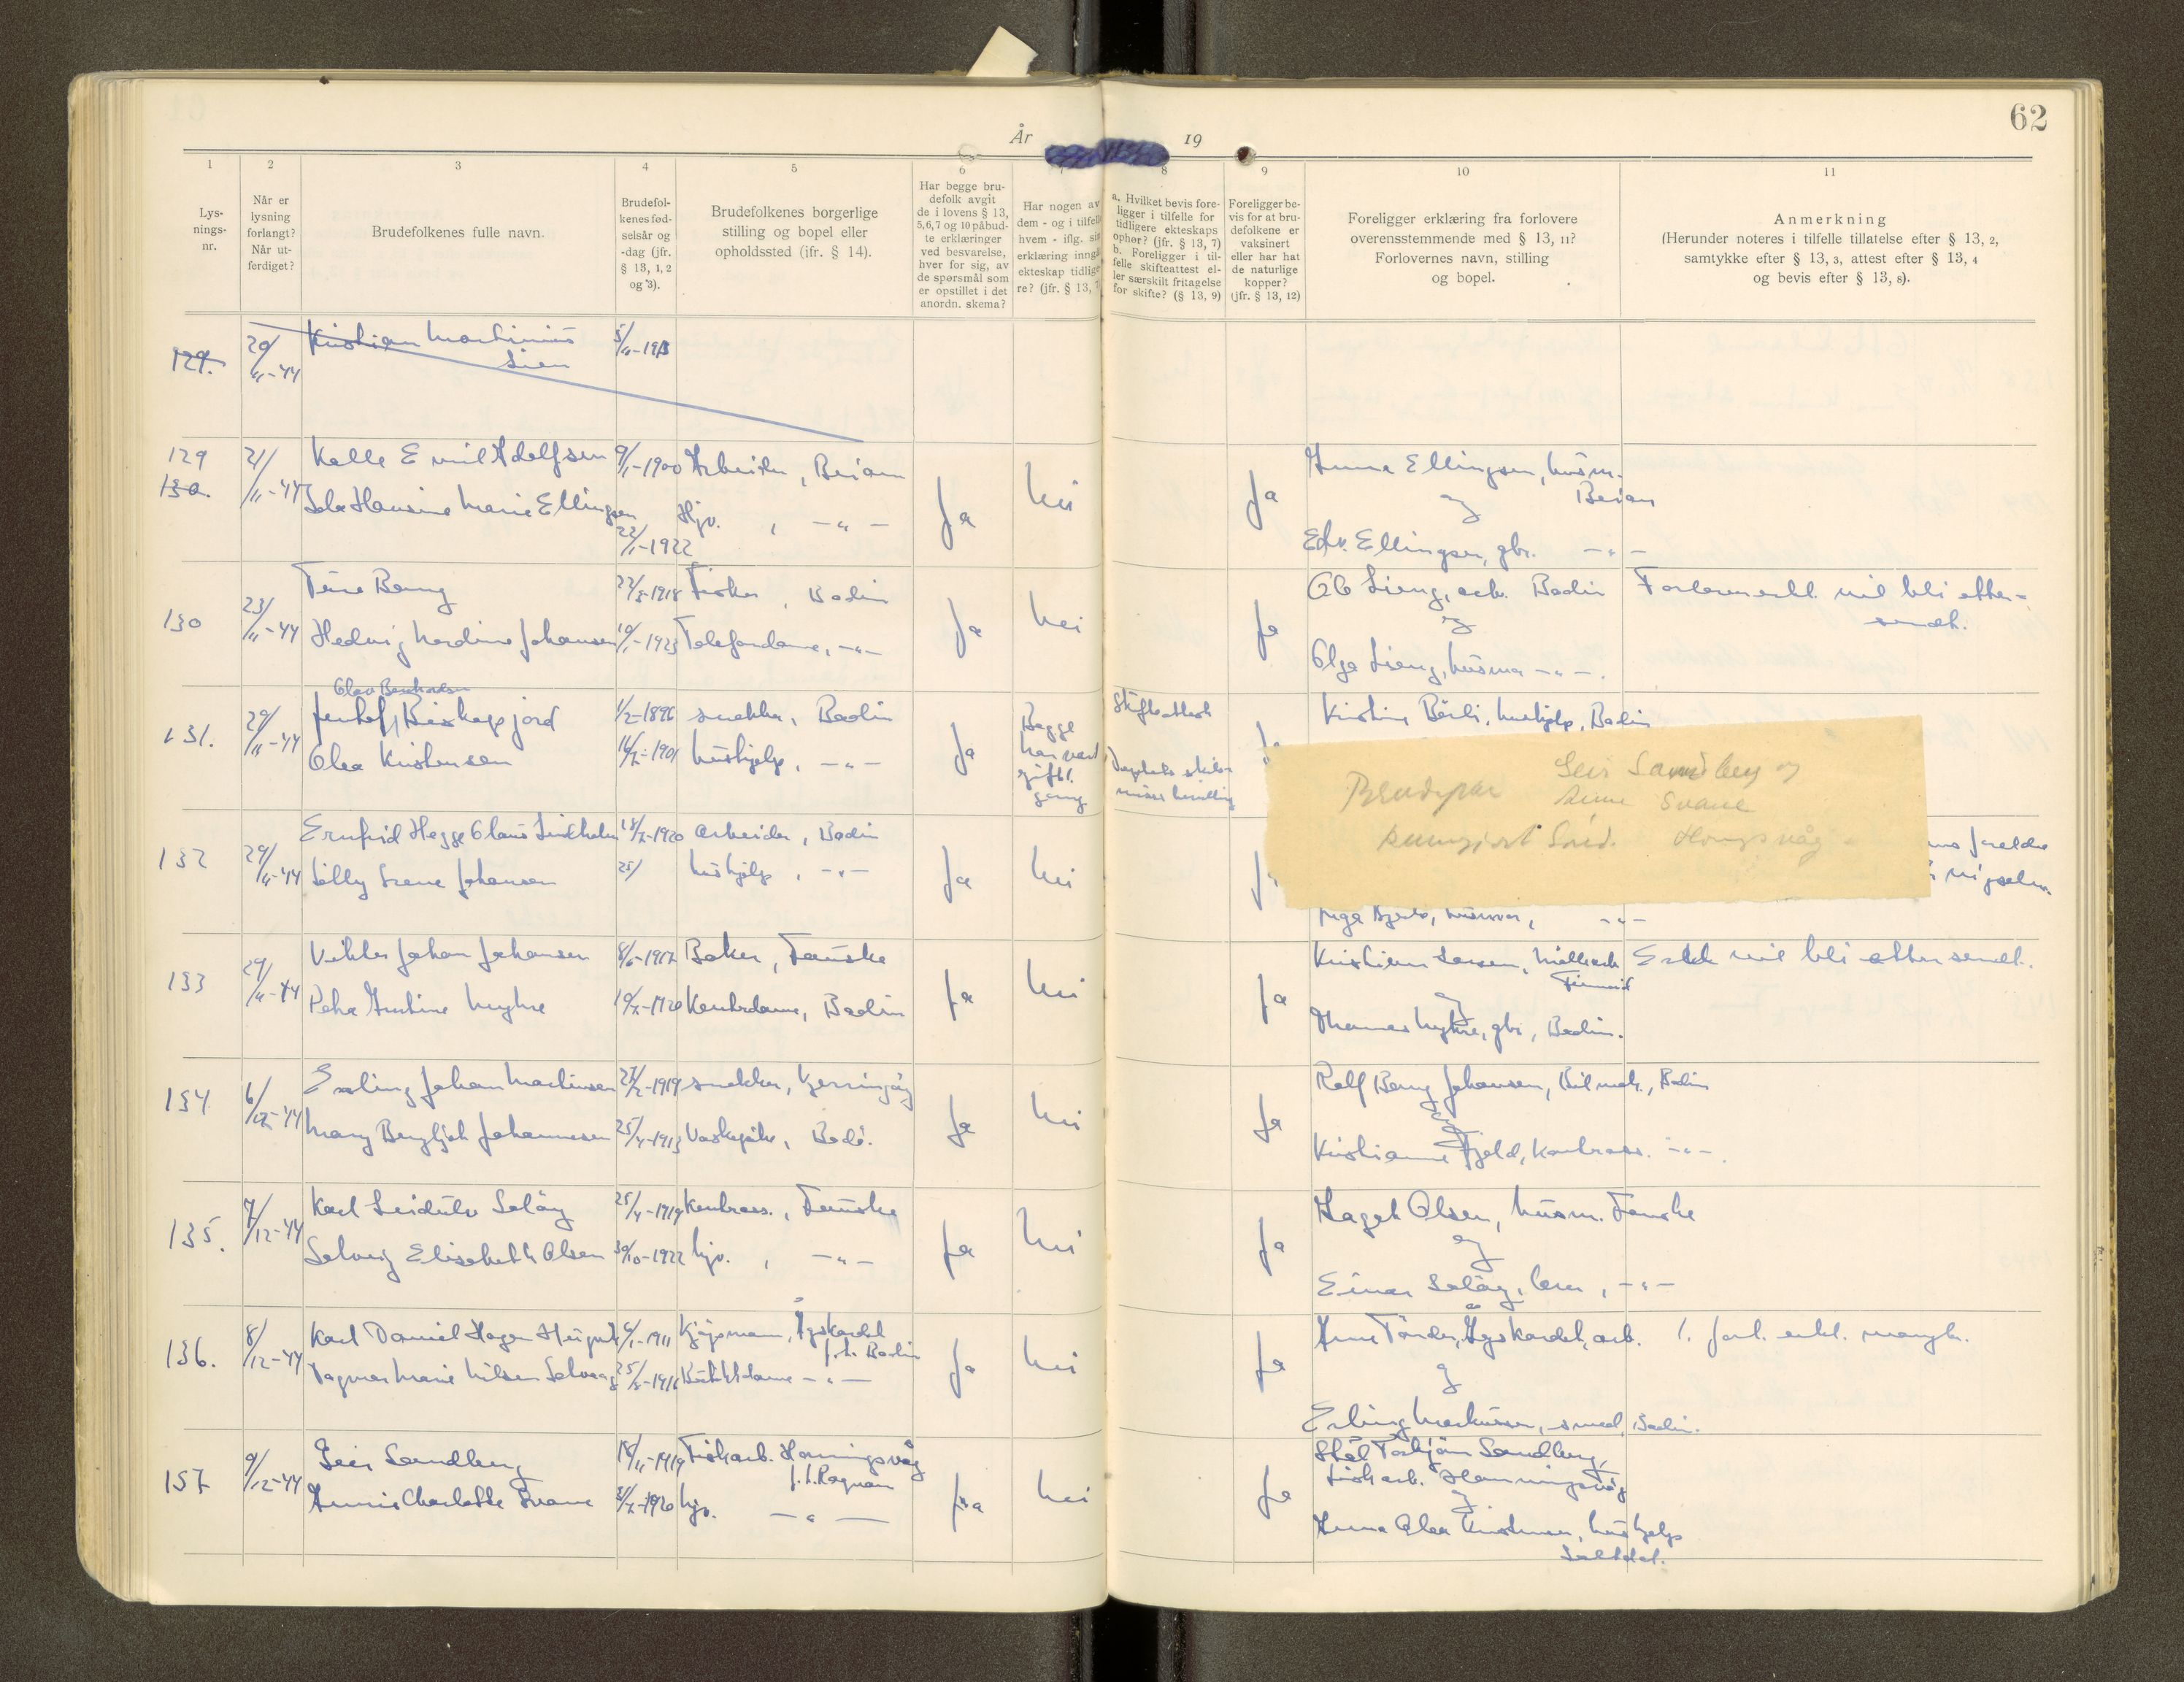 62
År 19
1 2 3 4 5 6 8 9 10 11
Lys-
nings-
nr.
Når er
lysning
forlangt?
Når ut-
ferdiget?
Brudefolkenes fulle navn.
Brudefol-
kenes fød-
selsår og
-dag (jfr.
§ 13, 1, 2
og 3).
Brudefolkenes borgerlige
stilling og bopel eller
opholdssted (ifr. § 14).
Har begge bru-
defolk avgit
de i lovens § 13,
5,6,7 og 10 påbud-
te erklæringer
ved besvarelse,
hver for sig, av
de spørsmål som
er opstillet i det
anordn. skema?
Har nogen av
dem - og i tilfelle
hvem - iflg. sin
erklæring inngå
ekteskap tidlige-
re? (jfr. § 13, 7
a. Hvilket bevis fore-
ligger i tilfelle for
tidligere ekteskaps
ophør? (jfr. § 13, 7)
b. Foreligger i til-
felle skifteattest el-
ler særskilt fritagelse
for skifte? (§ 13, 9)
Foreligger be-
vis for at bru-
defolkene er
vaksinert
eller har hat
de naturlige
kopper?
(jfr. § 13, 12)
Foreligger erklæring fra forlovere
overensstemmende med § 13, 11?
Forlovernes navn, stilling
og bopel.
Anmerkning
(Herunder noteres i tilfelle tillatelse efter § 13, 2,
samtykke efter § 13, 3, attest efter § 13, 4
og bevis efter § 13, 8).
129. 20/11-44 Kristian Martinius 5/11-1913
Lien
129 21/11-44 Kalle Emil Adolfsen 9/1-1900 Arbeider, Beiarn Ja Nei Ja Anna Ellingsen, husm.
130. og Beiarn
Hansine Marie Ellingsen 22/1-1922 Hjv. , -"-
Edv. Ellingsen, gbr. -"-
130 23/11-44 Berg 22/3-1918 Fisker, Bodin Ja Nei Ja Lieng, arb. Bodin vil bli etter-
sendt.
Hedvig Nordine Johansen 10/1-1923 Telefondame, -"- og
Olga Lieng, husmor -"-.
131. 29/11-44 Olav Bernhardsen
Biskopjord 1/2-1896 snekker, Bodin Ja Begge Skifteattest Kristine hushjelp, Bodin
Olea Kristensen 16/7-1901 hushjelp, -"- har vært
gift 1.
gang
bevilling
Brudepar Geir Sandberg og
Anne Svane
kunngjort Honningsvåg
132 29/11-44 Ernfrid Hegge Claus Lindholm 18/7-1920 arbeider, Bodin Ja Nei foreldre
Lilly Johansen 25/ hushjelp, -"-
Inga husmor, -"-
133 29/11-44 Viktor Johan Johansen 8/6-1917 Baker, Fauske Ja Nei Ja Kristian Larsen, Erkl. vil bli ettersendt.
Finneid
og
Petra Justine Myhre 10/7-1920 Kontordame, Bodin Thomas Myhre, gbr, Bodin.
134 6/12-44 Erling Johan Martinsen 27/2-1919 snekker, Kjerringøy Ja Nei Ja Rolf Berg Johansen, Bilmek., Bodin
og
Mary Bergljot Johannesen 25/4-1913 Vaskepike, Bodø. Kristianne Fjeld, Kontorass. -"-.
135. 7/12-44 Karl Leidulv Seløy 25/4-1919 Kontorass., Fauske Ja Nei Ja Hagel Olsen, husm. Fauske
og
Solveig Elisabeth Olsen 30/10-1922 hjv. , -"- Einar Seløy, , -"-
136. 8/12-44 Karl Daniel Hagen 6/1-1911 Kjøpmann, Ågskardet Ja Nei Ja Arne Tønder, Ågskardet, arb. 1. forl. erkl. mangler.
f.t. Bodin
og
Dagmar Marie Nilsen Solvaag 25/8-1916 Butikkdame -"-
Erling Markussen, smed, Bodin.
137 9/12-44 Geir Sandberg 18/11-1919 Fiskarb. Honningsvåg Ja Nei Ja Torbjørn Sandberg,
f.t. Rognan fiskarb. Honningsvåg
og
Annie Charlotte Svane 3/7-1920 hjv. -"- Anna Olea hushjelp
Saltdal.